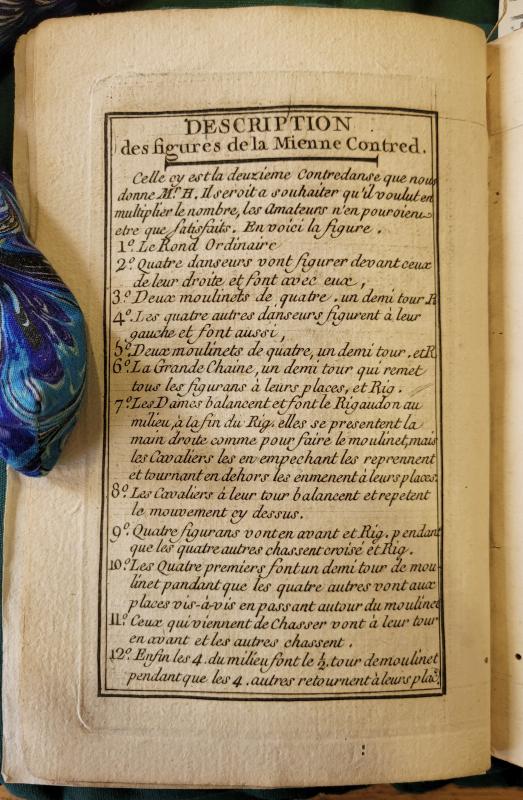 DESCRIPTION
des figures de la Mienne Contred.
Celle cy est la deuxieme Contredanse que nous
donne Mr. H. Il seroit a souhaiter qu'il voulut en
multiplier le nombre, les Amateurs n'en pouroient
etre que satisfaits. En voici la figure.
1º. Le Rond Ordinaire
2º. Quatre danseurs vont figurer devant ceux
de leur droite et font avec eux,
3º. Deux moulinets de quatre, un demi tour R
4º. Les quatre autres danseurs figurent à leur
gauche et font aussi,
5º. Deux moulinets de quatre, un demi tour, et R
6º. La Grande Chaine, un demi tour qui remet
tous les figurans à leurs places, et Rig.
7º. Les Dames balancent et font le Rigaudon au
milieu, à la fin du Rig. elles se presentent la
main droite comme pour faire le moulinet, mais
les Cavaliers les en empechant les reprennent
et tournant en dehors les enmenent à leurs places.
8º. Les Cavaliers à leur tour balancent et repetent
le mouvement cy dessus.
9º. Quatre figurans vont en avant et Rig. pendant
que les quatre autres chassent croisé et Rig.
10º. Les Quatre premiers font un demi tour de mou-
linet pandant que les quatre autres vont aux
places vis-à-vis en passant autour du moulinet
11º. Ceux qui viennent de Chasser vont à leur tour
en avant et les autres chassent.
12º. Enfin les 4. du milieu font le ½ tour de moulinet
pendant que les 4. autres retournent à leurs plac.